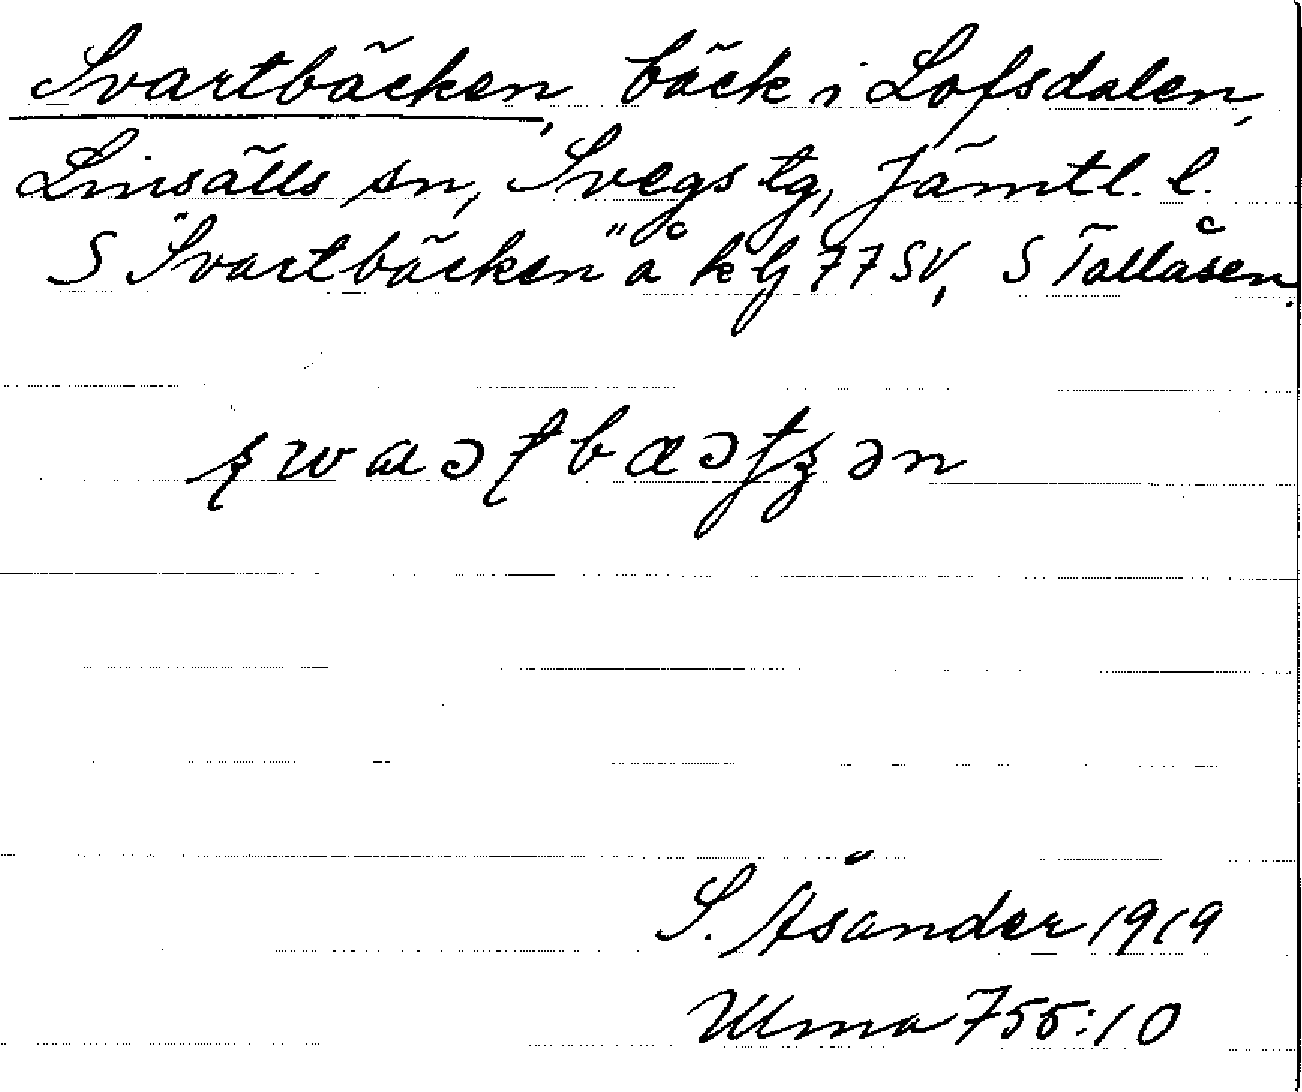 Svartbäcken, bäck i Lofsdalen,
Linsälls sn, Svegs tg, Jämtl. l.
S "Svartbäcken" å kbl 77 SV, S Tallåsen.
S. Åsander 1919
Ulma 755:10